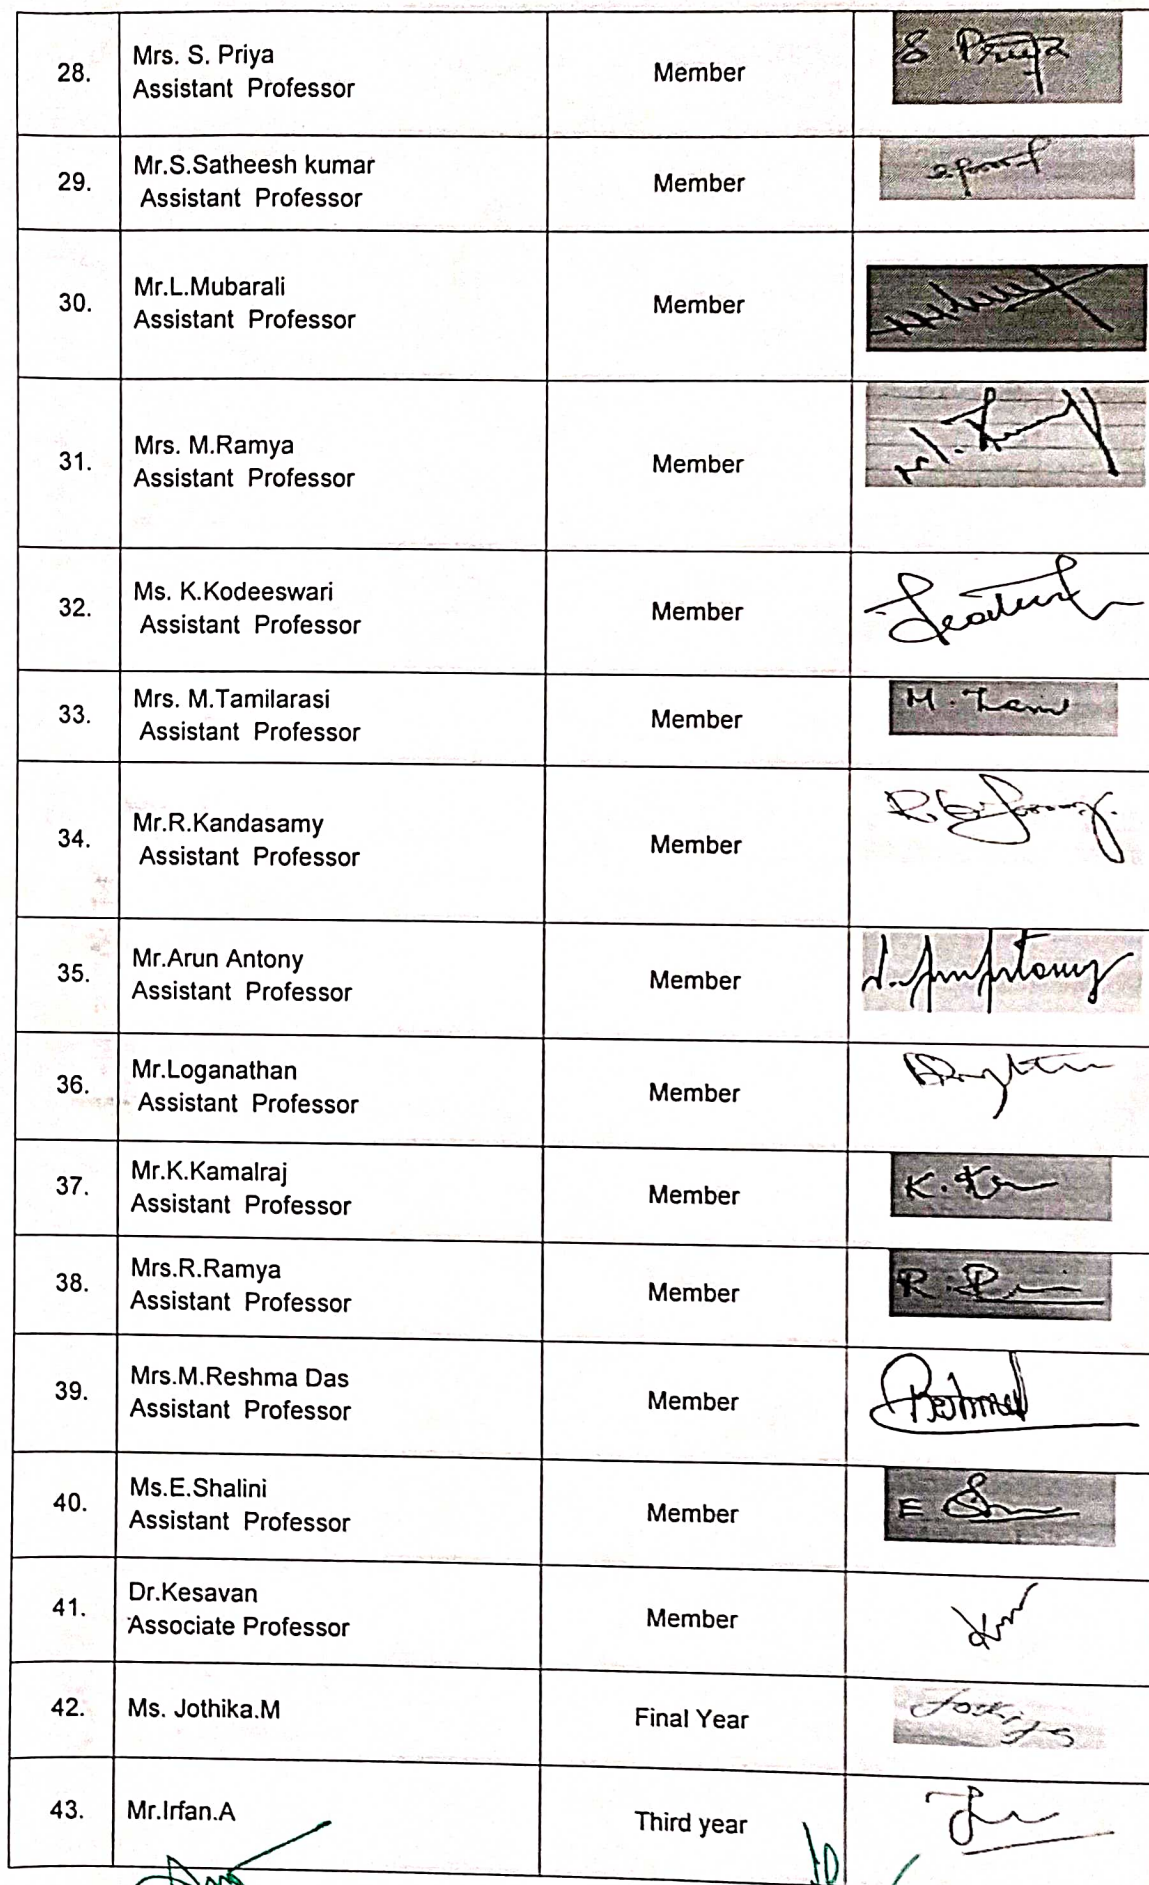 28.
Mrs. S. Priya
Assistant Professor
Member
S. Priya
29.
Mr.S.Satheesh kumar
Assistant Professor
Member
30.
Mr.L.Mubarali
Assistant Professor
Member
31.
Mrs. M.Ramya
Assistant Professor
Member
32.
Ms. K.Kodeeswari
Assistant Professor
Member
33.
Mrs. M.Tamilarasi
Assistant Professor
Member
M. Tamil
34.
Mr.R.Kandasamy
Assistant Professor
Member
35.
Mr.Arun Antony
Assistant Professor
Member
36.
Mr.Loganathan
Assistant Professor
Member
37.
Mr.K.Kamalraj
Assistant Professor
Member
38.
Mrs.R.Ramya
Assistant Professor
Member
39.
Mrs.M.Reshma Das
Assistant Professor
Member
40.
Ms.E.Shalini
Assistant Professor
Member
41.
Dr.Kesavan
Associate Professor
Member
42.
Ms. Jothika.M
Final Year
43.
Mr.Irfan.A
Third year